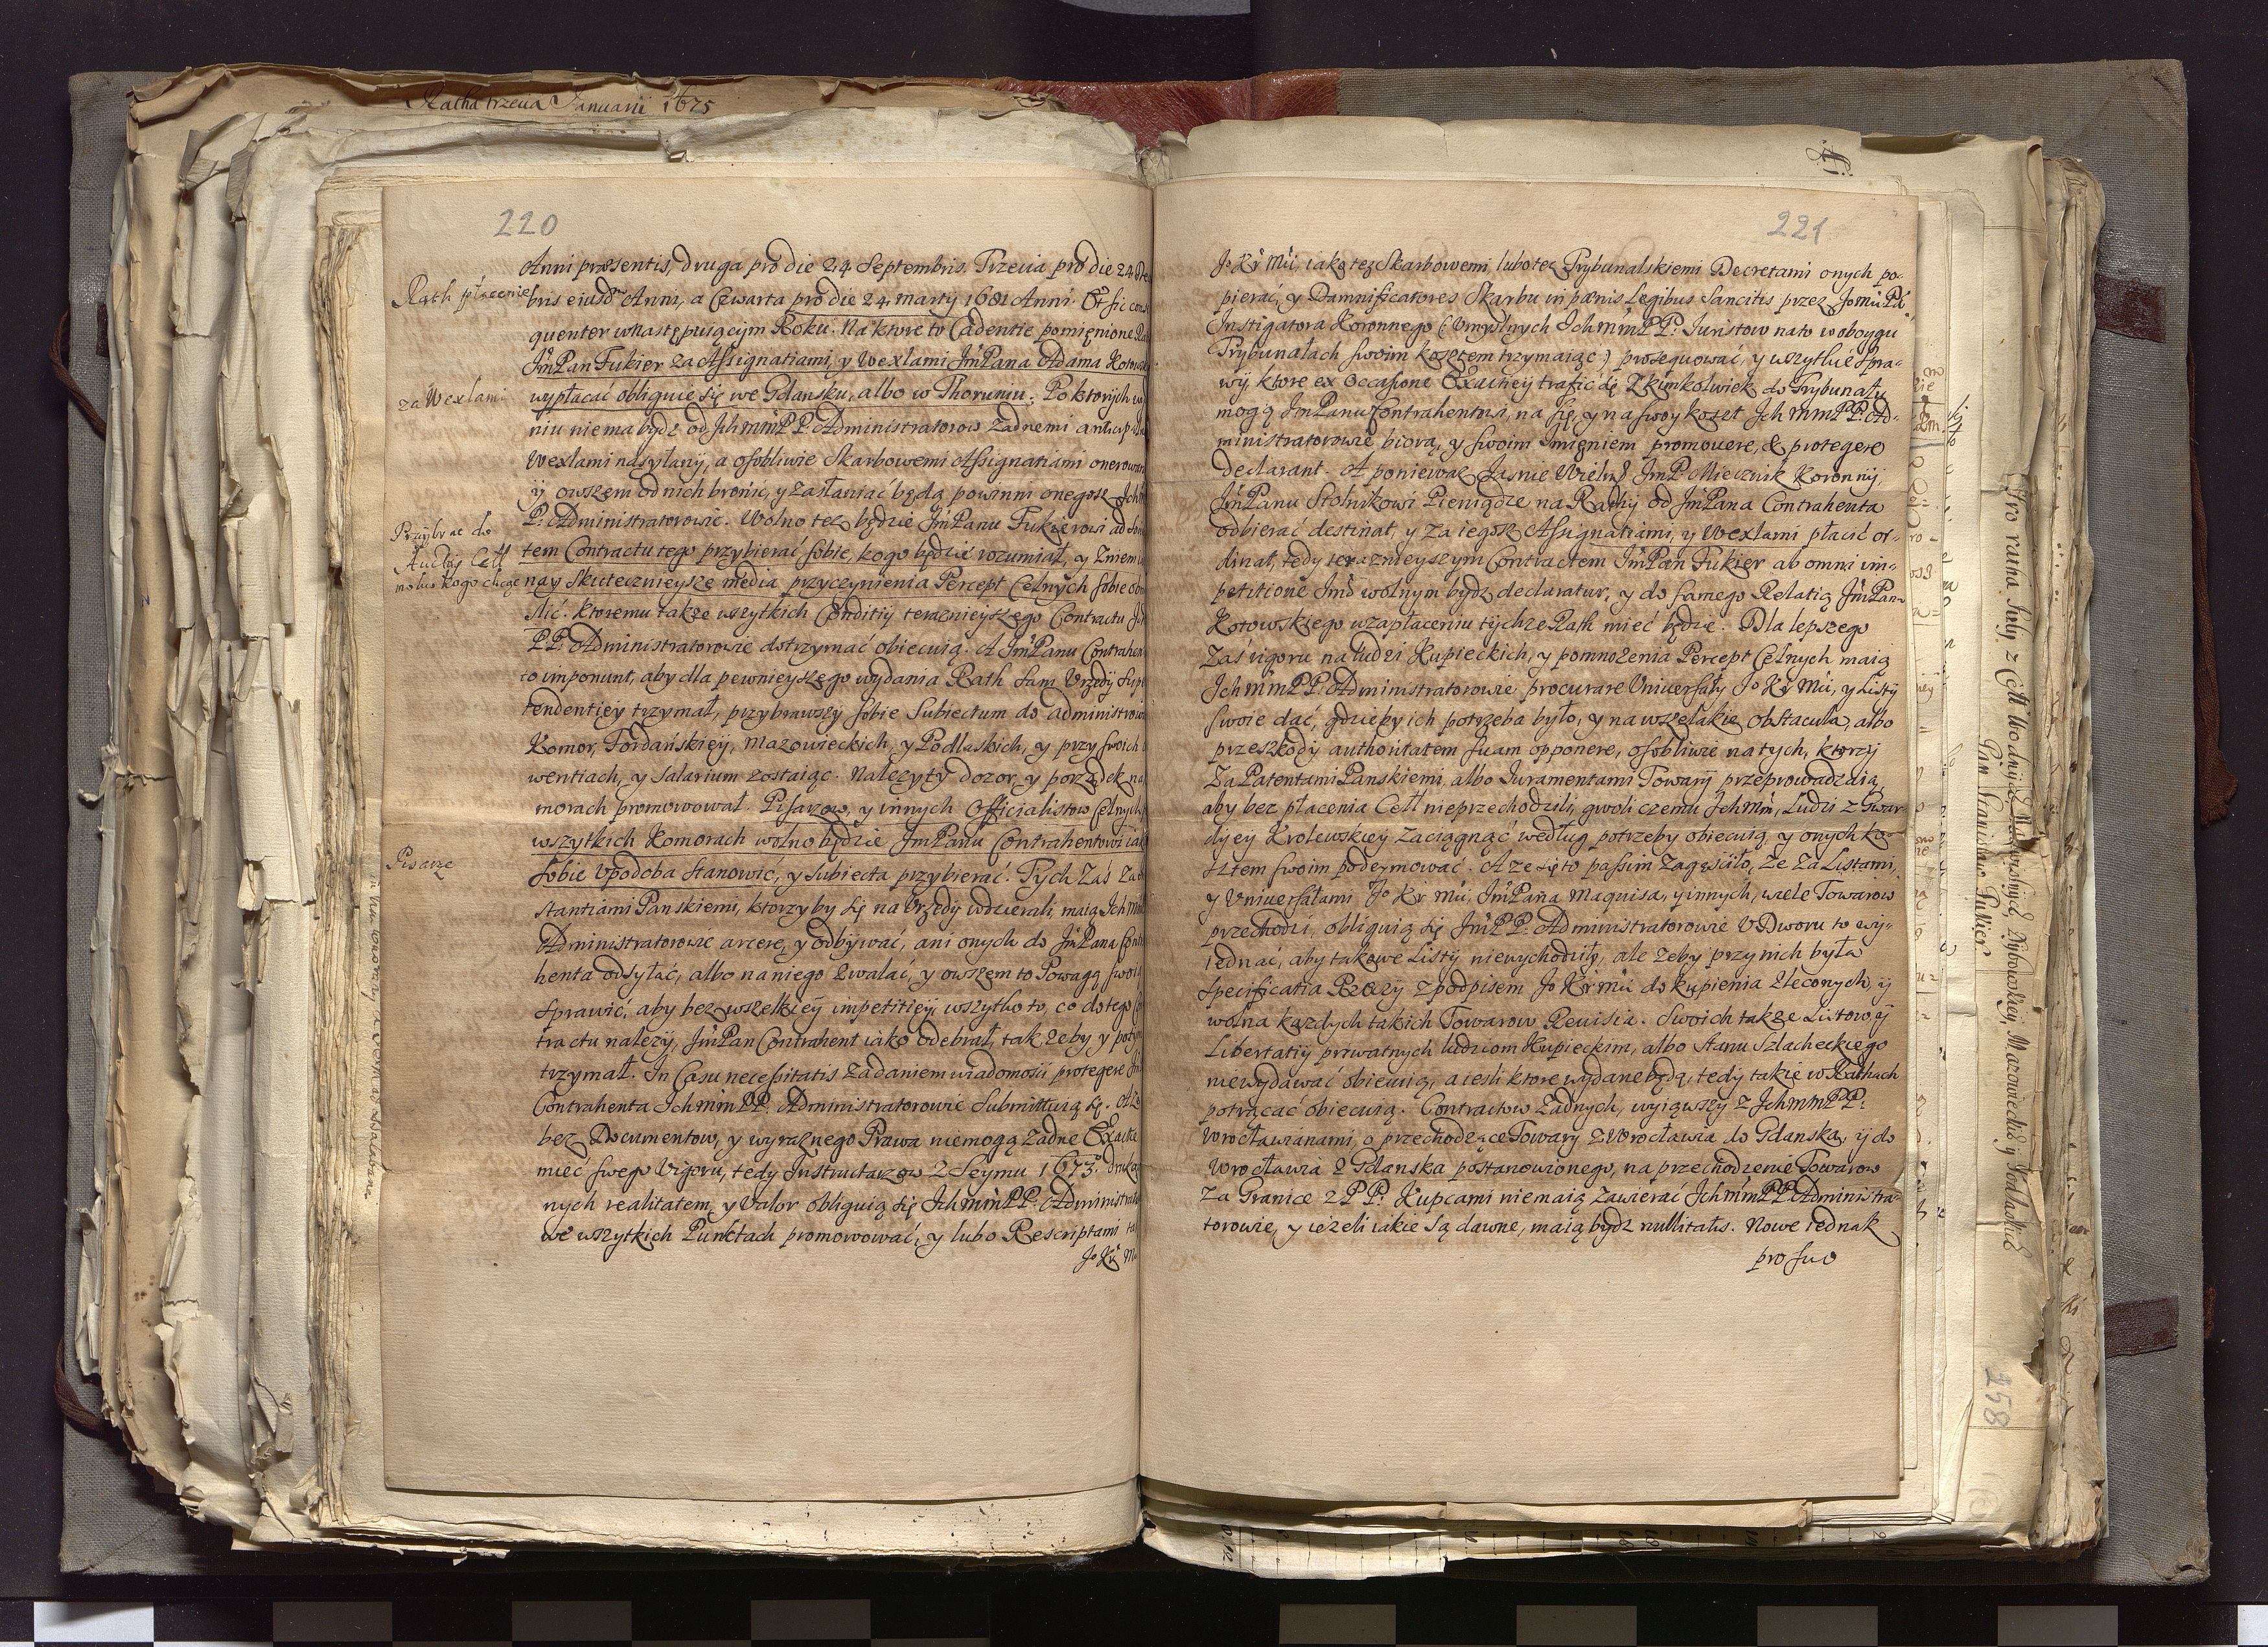 Ratha trzecia Januarii 1675
220
Anni præsentis, druga pro die 24 Septembris. Trzecia pro die 24 De
Rath płacenie
bris eiusd. Anni, a Czwarta pro die 24 marty 1681 Anni. Et sic cons
quenter w następuiącym Roku. Na ktore to Cadentie pomięnione Ra
JmPan Fukier za Assignatiami, y Wexlami JmPana Adama Kotow
za Wexlami
wypłacać obliguie się we Gdansku, albo w Thoruniu. Po ktorych wy
niu niema bydz od JchmmPP. Administratorow żadnemi anticip
Wexlami nasyłany, a osobliwie Skarbowemi Assignatiami onerowan
ÿ owszem od nich bronić, y zasłaniać będą powinni onegosz Jch
P. Administratorowie. Wolno tez będzie JmPanu Fukierowi ad
Przÿbrac do
tem Contractu tego przybierać sobie, kogo będzie rozumiał, y z niem
Cell
kogo chcąc
nay Skutecznieysze media przyczynienia Percept Celnych sobie
slić. ktoremu takze wszytkich Conditiÿ teraznieyszego Contractu
PP. Administratorowie dotrzymać obiecuią. A JmPanu Contrahen
to imponunt, aby dla pewnieyszego wydania Rath sam Urzędÿ Sup
tendentięÿ trzymał, przybrawszy sobie Subiectum do administrow
Komor, Fordańskięÿ, Mazowieckich, y Podlaskich, y przy swoich
wentiach, y Salarium zostaiąc. Nalezyty dozor, y porządek na
morach promowował. Pisarzow, y innych Officialistow Celnych
wszytkich Komorach wolno będzie JmPanu Contrahentowi iak
Pisarze
sobie upodoba Stanowić, y Subiecta przybierać. Tych Zaś Za
stantiami Panskiemi, ktorzy by się na Urzędy wdzierali, maią Jchm
Administratorowie arcere, y odbywać, ani onych do JmPana Contr
henta odsyłać, albo na niego zwalać, y owszem to Powagą swoi
sprawić, aby bez wszelkieÿ impetitieÿ wszytko to, co do tego
tractu nalezy, JmPan Contrahent iako odebrał, tak zeby y poty
trzymał. In Casu necessitatis za daniem wiadomości protegere
Contrahenta JchmmPP. Administratorowie submittuią się. A ze
bez Documentow, y wyraznego Prawa niemogą żadne Exactie
mieć swego Vigoru, tedy Instructarzow z Seymu 1673. druko
nych realitatem, y Valor obliguią się JchmmPP. Administrato
we wszytkich Punctach promowować, y lubo Rescriptami
Jo Kr M
221
Jo Kr Mći, iako tez Skarbowemi, lubo tez Trybunalskiemi Decretami onych po-
pierać, y Damnificatores Skarbu in pœnis Legibus Sancitis przez JomćiPa
Instigatora Koronnego (Umyślnych JchmmPP. Juristow na to w oboygu
Trybunałach swoim kosztem trzymaiąc) prosequować, y wszytkie Spra-
wy ktore ex occasione Exactiey trafić się z kimkolwiek do Trybunału
mogą JmPanu Contrahentowi, na się, y na swoy koszt JchmmPP. Ad-
ministratorowie biorą, y swoim Imięniem promovere, & protegere
declarant. A poniewasz Jasnie Wielm JmP. Miecznik Koronnÿ,
JmPanu Stolnikowi Pieniądze na Rathy od JmPana Contrahenta
odbierać destinat, y za iegosz Assignatiami, y Wexlami płacić or-
dinat, tedy teraznieyszym Contractem JmPan Fukier ab omni im-
petitione Jmś wolnym bydz declaratur, y do samego Relatią JmPana
Kotowskiego w zapłaceniu tychze Rath mieć będzie. Dla lepszego
Zaś vigoru na ludzi Kupieckich, y pomnożenia Percept Celnych maią
JchmmPP. Administratorowie, procurare Universały Jo Kr Mći, y Listÿ
swoie dać, gdzieby ich potrzeba było, y na wszelakie obstacula, albo
przeszkody authoritatem suam opponere, osobliwie na tych, ktorzÿ
Za Patentami Panskiemi, albo Juramentami Towarÿ przeprowadzaią
aby bez płacenia Cełł nieprzechodzili, gwoli czemu Jchmm, Ludzi z Gwar-
dÿey Krolewskieÿ zaciągnąć według potrzeby obiecuią, y onych ko-
sztem swoim podeymować. A ze się to passim zagęściło, ze za Listami,
y Universałami Jo Kr Mći, JmPana Marquisa, y innych, wiele Towarow
przechodzi, obliguią się JmPP. Administratorowie u Dworu to wy-
iednać, aby takowe Listÿ niewychodziły, ale zeby przy nich była
Specificatia Rzeczy z podpisem Jo Kr Mći do kupienia zleconych, ÿ
wolna kazdych takich Towarow Revisia. Swoich takze Listow ÿ
Libertatiÿ prywatnych ludziom Kupieckim, albo Stanu Szlacheckiego
niewydawać obiecuią, a iesli ktore wydane będą, tedy takie w Rathach
potrącać obiecuią. Contractow żadnych, wyiąwszy z JchmmPP.
Wrocławianami, o przechodzące Towary z Wrocławia do Gdanska, ÿ do
Wrocławia z Gdanska postanowionego, na przechodzenie Towarow
za Granice z PP. Kupcami niemaią zawierać JchmmPP Administra-
torowie, y iezeli iakie są dawne, maią bydz nullitatis. Nowe iednak
pro suo
Pro ratha July z Cełł Wodnÿch Mazowieckich y Podlaskich
Pan Stanisław Fukier
258